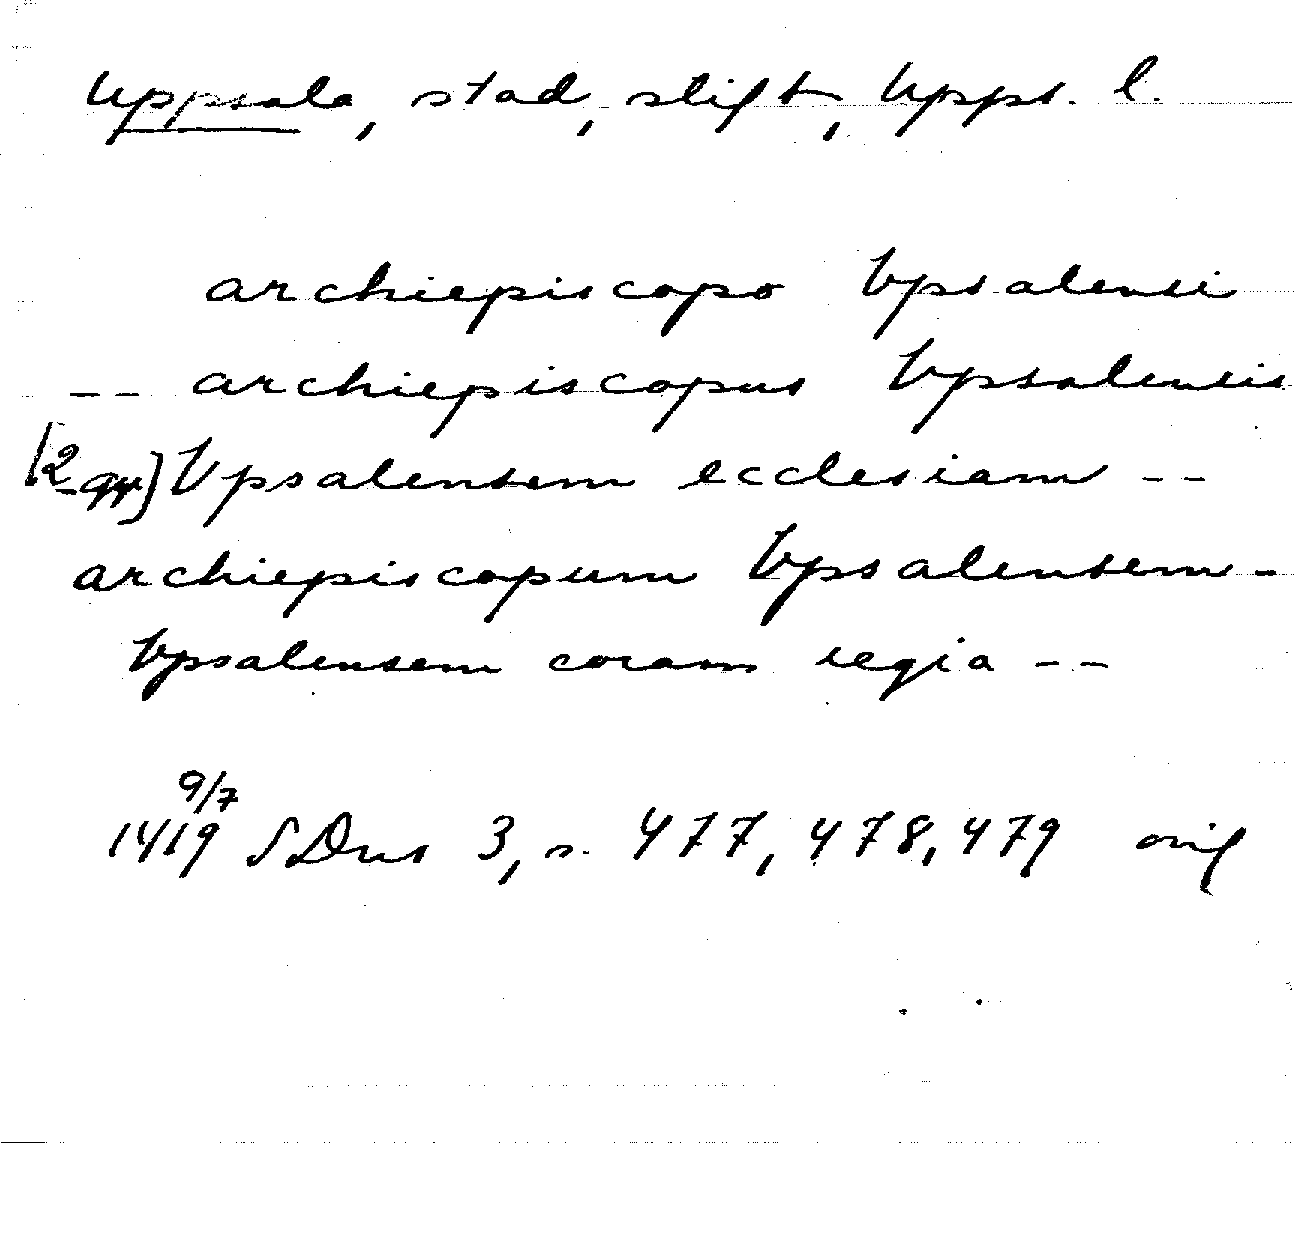 Uppsala, stad, stift, Upps. l.
archiepiscopo Vpsalensi
-- archiepiscopus Vpsalensis
[2 ggr] Vpsalensem ecclesiam --
archiepiscopum Vpsalensem -
Vpsalensem coram regia --
9/7
1419 SDns 3, s. 477, 478, 479 orig